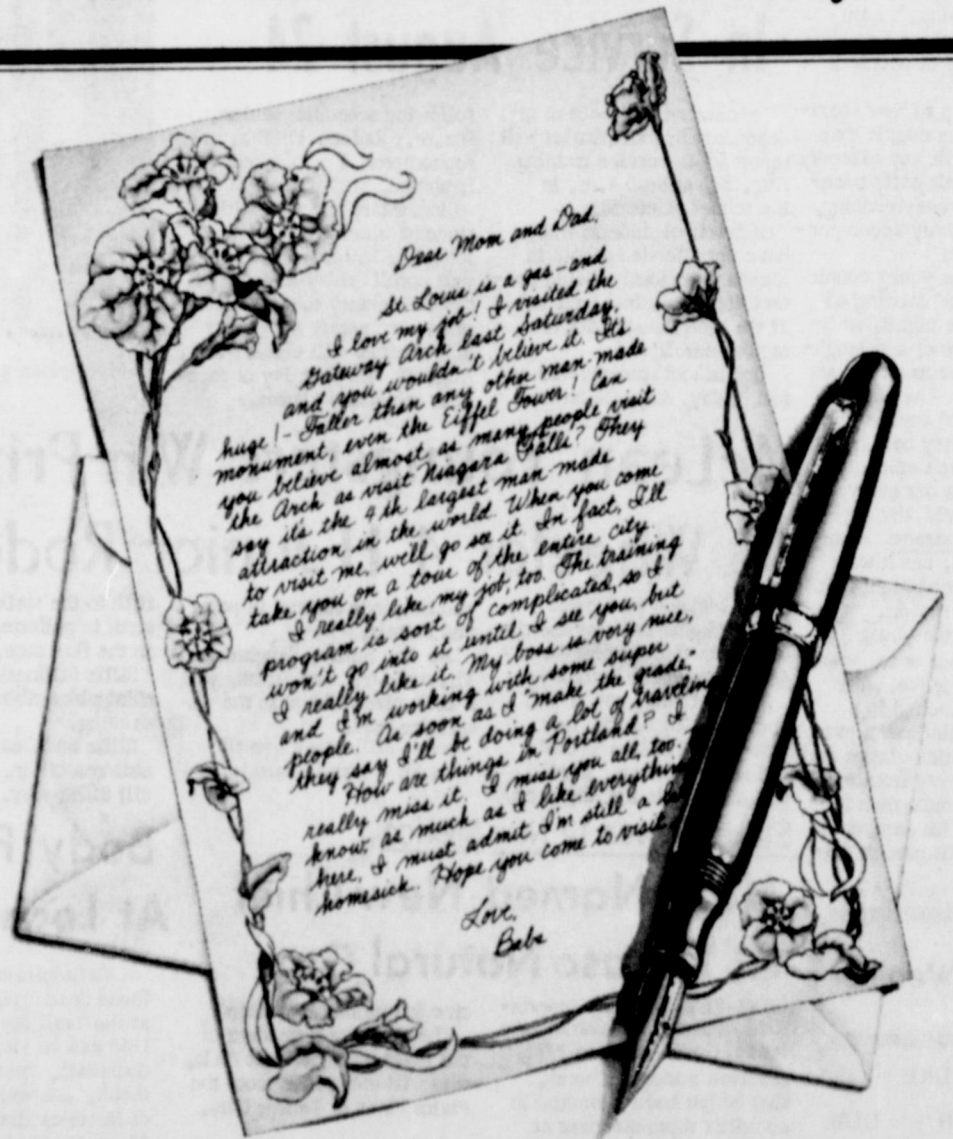 Dear Mom and Dad,
St. Louis is a gas - and
I love my job! I visited the
Gateway Arch last Saturday,
and you wouldn't believe it. It's
huge! - Taller than any other man-made
monument, even the Eiffel Tower! Can
you believe almost as many people visit
the Arch as visit Niagara Falls? They
say it's the 4th largest man made
attraction in the world. When you come
to visit me, will go see it. In fact, I'll
take you on a tour of the entire city.
I really like my job, too. The training
program is sort of complicated, so I
won't go into it until I see you, but
I really like it. My boss is very nice,
and I'm working with some super
people. As soon as I "make the grade,"
they say I'll be doing a lot of
How are things in Portland? I
really miss it. I miss you all, too.
know, as much as I like
here, I must admit I'm still a
homesick. Hope you come to visit
Love,
Babs